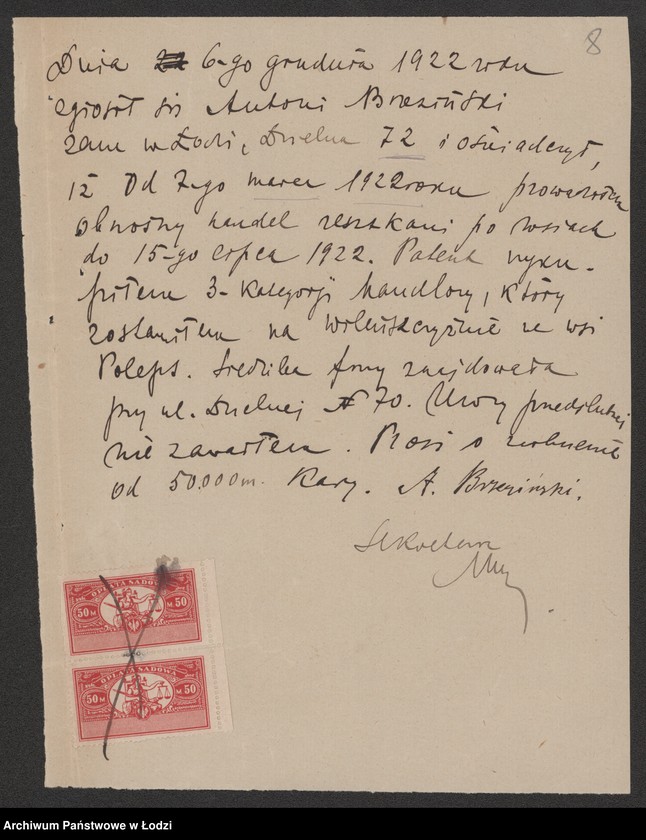 8
Dnia 6-go grudnia 1922 roku
zgłosił się Antoni Brzeziński
zam w Łodzi, Dzielna 72 i oświadczył,
iż Od 7-go marca 1922 roku prowadziłem
obnośny handel resztkami po wsiach
do 15-go lipca 1922. Patent wyku-
piłem 3-kategorji handlowy, który
zostawiłem na Wileńszczyźnie we wsi
Siedziba firmy znajdowała
przy ul. Dzielnej № 70. Umowy przedślubnej
nie zawarłem. Prosi o zwolnienie
od 50.000 m. Kary. A. Brzeziński.
Sekretarz
OPŁATA SĄDOWA
50 M M 50
OPŁATA SĄDOWA
50 M M 50
Archiwum Państwowe w Łodzi